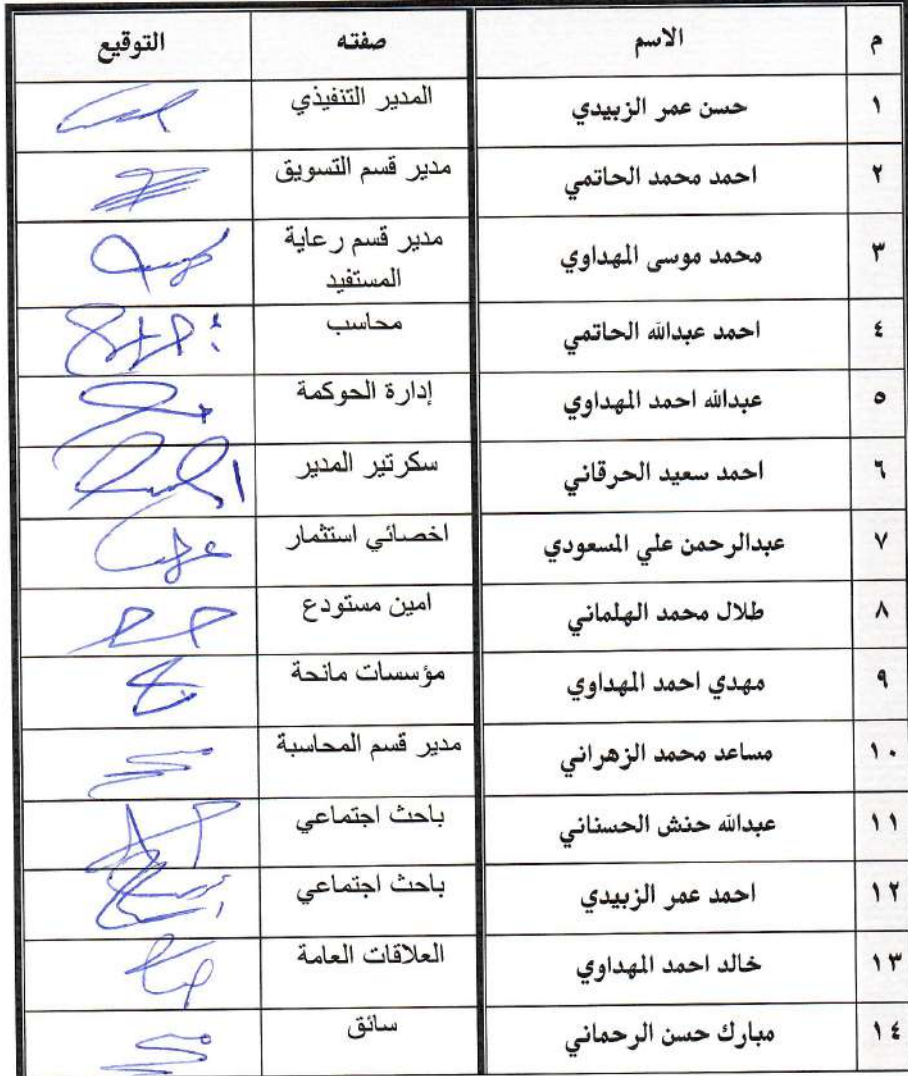 م الاسم صفته التوقيع
١ حسن عمر الزبيدي المدير التنفيذي
٢ احمد محمد الحاتمي مدير قسم التسويق
٣ محمد موسى المهداوي مدير قسم رعاية
المستفيد
٤ احمد عبدالله الحاتمي محاسب
٥ عبدالله احمد المهداوي إدارة الحوكمة
٦ احمد سعيد الحرقاني سكرتير المدير
٧ عبدالرحمن علي المسعودي اخصائي استثمار
٨ طلال محمد الهلماني امين مستودع
٩ مهدي احمد المهداوي مؤسسات مانحة
١٠ مساعد محمد الزهراني مدير قسم المحاسبة
١١ عبدالله حنش الحسناني باحث اجتماعي
١٢ احمد عمر الزبيدي باحث اجتماعي
١٣ خالد احمد المهداوي العلاقات العامة
١٤ مبارك حسن الرحماني سائق